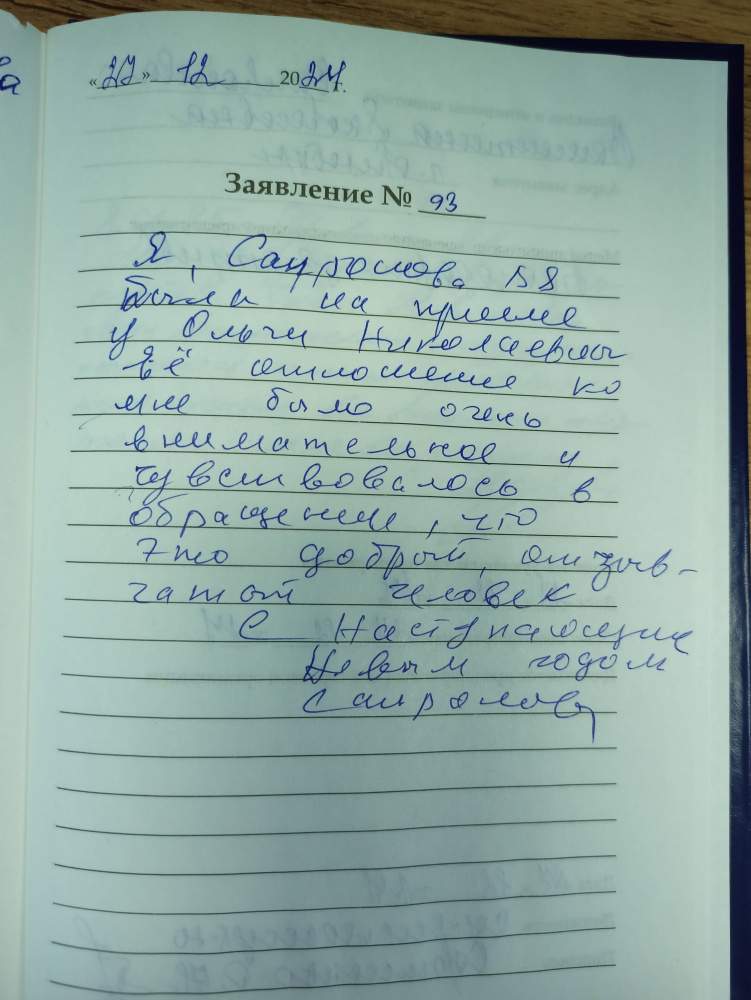 «27» 12 2024 г.
Заявление № 93
Я,
была на приеме
у Ольги Николаевны
Её отношение ко
мне было очень
внимательное и
чувствовалось в
обращении, что
это добрый, отзыв-
чатый человек
С Наступающим
Новым годом